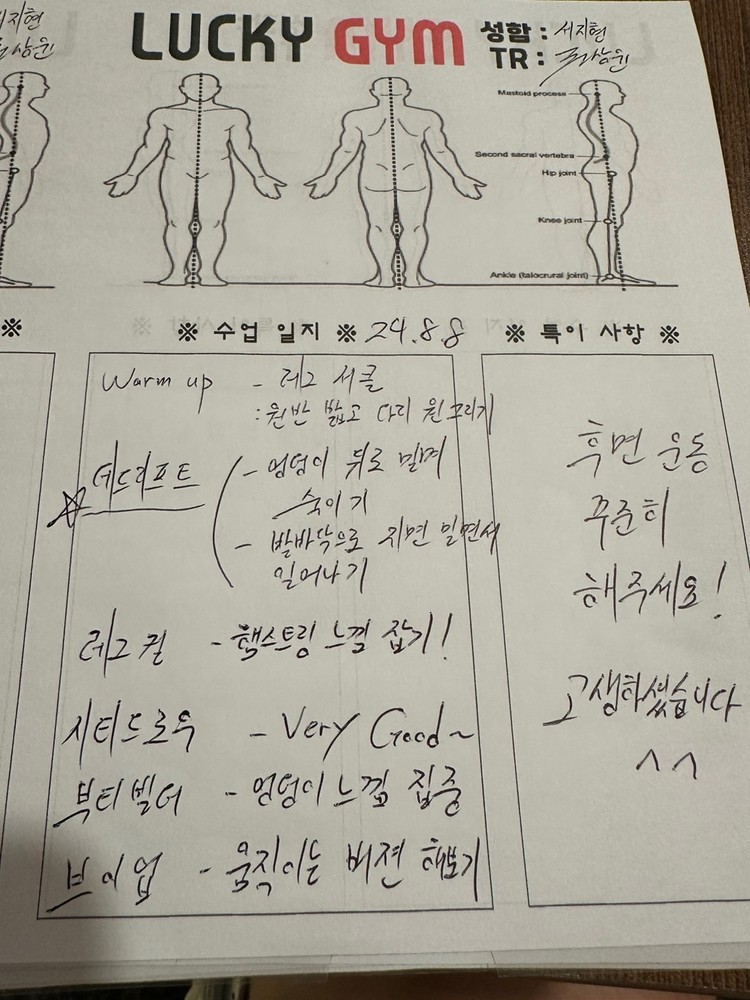 LUCKY GYM
성함 : 서지현
TR :
Mastoid process
Second sacral vertebra
Hip joint
Knee joint
Ankle (talocrural joint)
※
※ 수업 일지 ※ 24.8.8
Warm up - 레그 서클
: 원반 밟고 다리 원 그리기
☆ 데드리프트 - 엉덩이 뒤로 밀며
숙이기
- 발바닥으로 지면 밀면서
일어나기
레그 컬 - 햄스트링 느낌 잡기!
시티드로우 - Very Good~
부티빌더 - 엉덩이 느낌 집중
브이업 - 움직이는 버젼 해보기
※ 특이 사항 ※
후면 운동
꾸준히
해주세요!
고생하셨습니다
^^